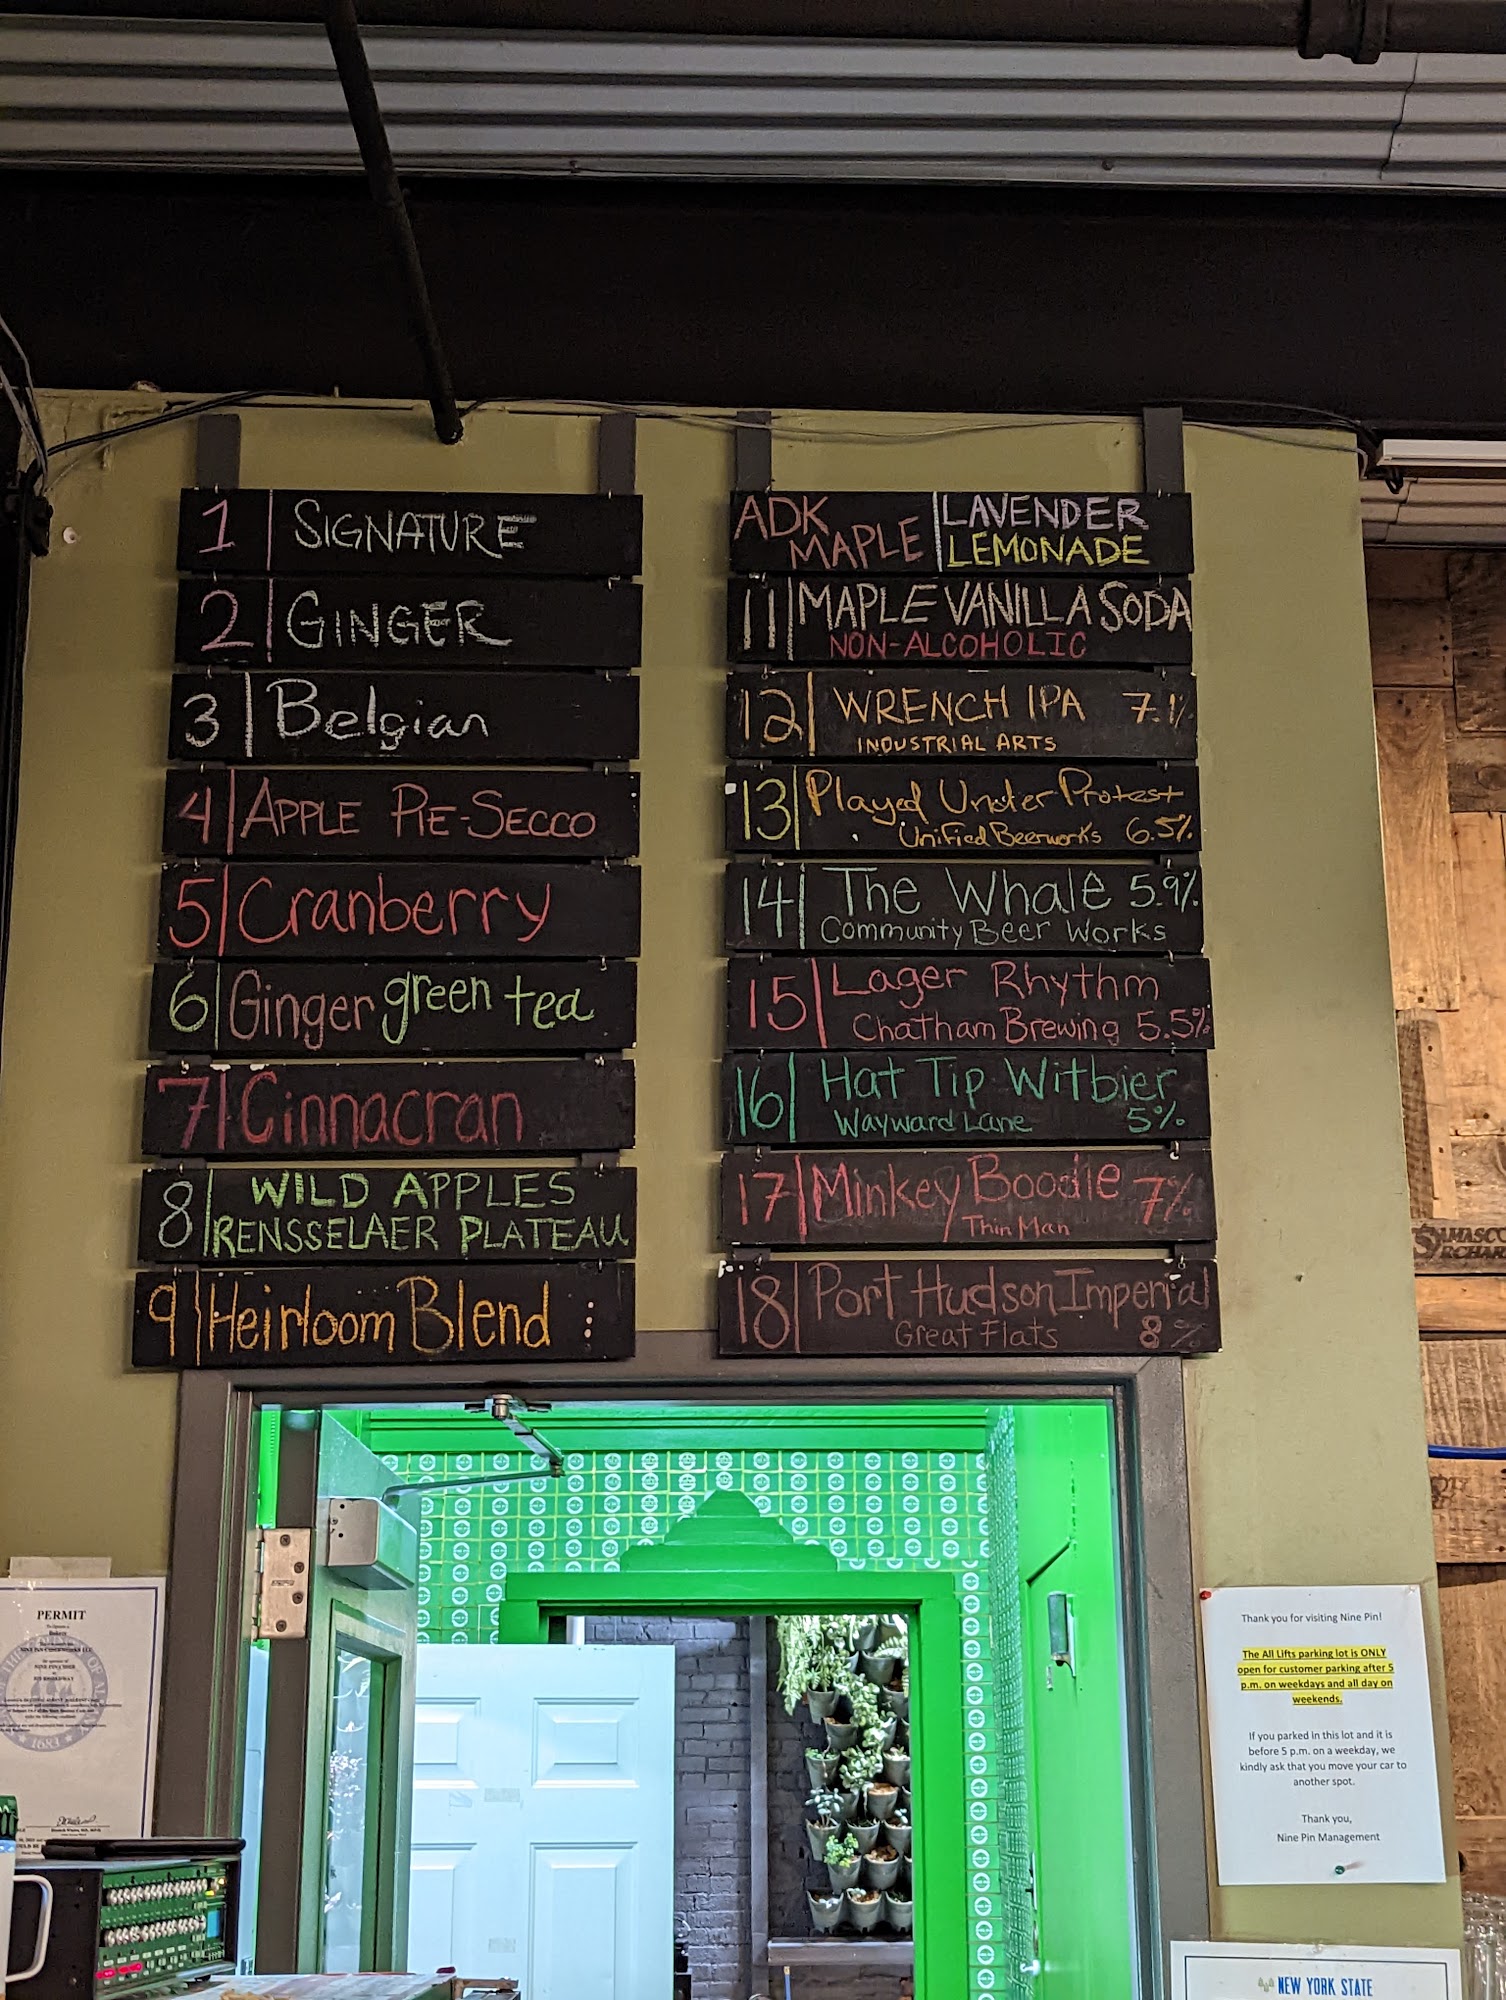 1 SIGNATURE
2 GINGER
3 Belgian
4 APPLE PIE-SECCO
5 Cranberry
6 Ginger green tea
7 Cinnacran
8 WILD APPLES
RENSSELAER PLATEAU
9 Heirloom Blend
ADK MAPLE
LAVENDER LEMONADE
11 MAPLE VANILLA SODA
NON-ALCOHOLIC
12 WRENCH IPA 7.1%
INDUSTRIAL ARTS
13 Played Under Protest
Unified Beerworks 6.5%
14 The Whale 5.9%
Community Beer Works
15 Lager Rhythm
Chatham Brewing 5.5%
16 Hat Tip Witbier
Wayward Lane 5%
17 Minkey Boodle 7%
Thin Man
18 Port Hudson Imperial
Great Flats 8%
PERMIT
NINE PIN CIDERWORKS LLC
1683
Thank you for visiting Nine Pin!
The All Lifts parking lot is ONLY
open for customer parking after 5
p.m. on weekdays and all day on
weekends.
If you parked in this lot and it is
before 5 p.m. on a weekday, we
kindly ask that you move your car to
another spot.
Thank you,
Nine Pin Management
NEW YORK STATE